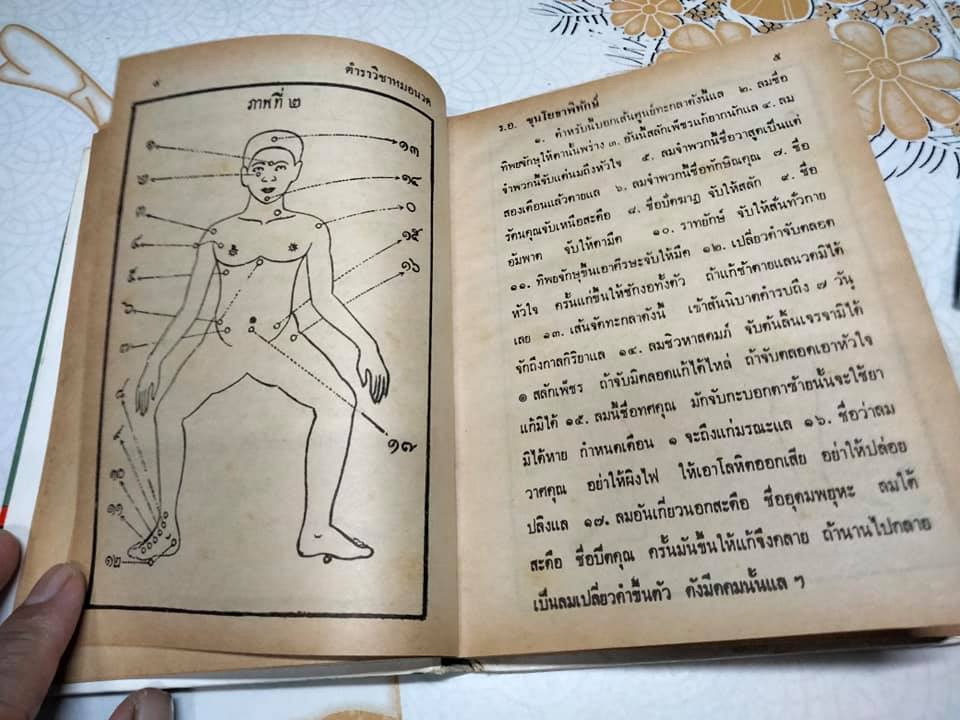 ๔
ตำราวิชาหมอนวด
ภาพที่ ๒
๑
๒
๓
๔
๕
๖
๗
๘
๙
๑๐
๑๑
๑๒
๑๓
๑๔
๐
๑๕
๑๖
๑๗
ร.อ. ขุนโยธาพิทักษ์
๕
๑. ตำหรับนี้บอกเส้นศูนย์ทะกลาดังนี้แล ๒. ลมชื่อ
ทิพยจักษุให้ตานั้นพร่าง ๓. อันนี้สลักเพ็ชรแก้ยากนักแล ๔. ลม
จำพวกนี้จับแต่นมถึงหัวใจ ๕. ลมจำพวกนี้ชื่อวาสุดเป็นแต่
สองเดือนแล้วตายแล ๖. ลมจำพวกนี้ชื่อทักษิณคุณ ๗. ชื่อ
รัตนคุณจับเหนือสะดือ ๘. ชื่อปัตฆาฏ จับให้สลัก ๙. ชื่อ
อัมพาต จับให้ตามืด ๑๐. ราทยักษ์ จับให้สั่นทั่วกาย
๑๑. ทิพยจักษุขึ้นเอาศีรษะจับให้มืด ๑๒. เปลี่ยวดำจับตลอด
หัวใจ ครั้นแก่ขึ้นให้ชักงอทั้งตัว ถ้าแก้ช้าตายแลนวดมิได้
เลย ๑๓. เส้นจัดทะกลาดังนี้ เข้าสันนิบาตคำรบถึง ๗ วัน
จักถึงกาลกิริยาแล ๑๔. ลมชิวหาสดมภ์ จับต้นลิ้นเจรจามิได้
๑ สลักเพ็ชร ถ้าจับมิตลอดแก้ได้ไหล่ ถ้าจับตลอดเอาหัวใจ
แก้มิได้ ๑๕. ลมนี้ชื่อทศคุณ มักจับกะบอกตาซ้ายนั้นจะใช้ยา
มิได้หาย กำหนดเดือน ๑ จะถึงแก่มรณะแล ๑๖. ชื่อว่าลม
วาศคุณ อย่าให้ผิงไฟ ให้เอาโลหิตออกเสีย อย่าให้ปล่อย
ปลิงแล ๑๗. ลมอันเกี่ยวนอกสะดือ ชื่ออุดมพยุหะ ลมใต้
สะดือ ชื่อปีตคุณ ครั้นมันขึ้นให้แก้จึงคลาย ถ้านานไปกลาย
เป็นลมเปลี่ยวดำขึ้นตัว ดังมีดคมนั้นแล ๆ